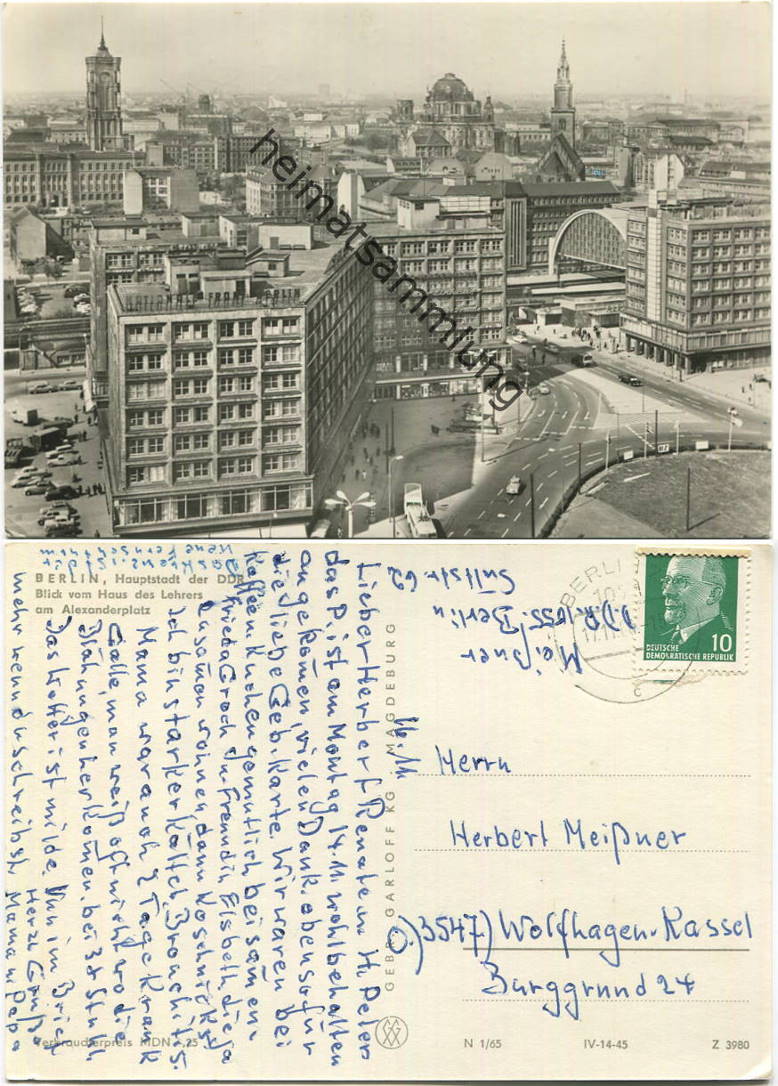 heimatsammlung
BERLIN, Hauptstadt der DDR
Blick vom Haus des Lehrers
am Alexanderplatz
Das Kreuz ist der
neue Fernsehturm
16./11.
Lieber Herbert, Renate u. H. Peter
das P. ist am Montag 14.11. wohlbehalten
angekommen, vielen Dank, ebenso für
die liebe Geb. Karte. Wir waren bei
Kaffee u. Kuchen gemütlich beisammen
Frieda Groch u. Freundin Elsbeth, die ja
zusammen wohnen, dann
Ich bin starker Bronchitis.
Mama war auch 2 Tage krank
Galle, man weiß oft nicht wo die
Blähungen herkommen, bei 3x Stuhl
Das Wetter ist milde. Nun im Brief
mehr wenn du schreibst. Mama u. Papa
Herzl. Grüße
Verbraucherpreis MDN -,25
GEBR. GARLOFF KG MAGDEBURG
Meißner
DDR 1055 Berlin
62
BERLIN
10
DEUTSCHE
DEMOKRATISCHE REPUBLIK
Herrn
Herbert Meißner
3547) Wolfhagen-Kassel
Burggrund 24
N 1/65
IV-14-45
Z 3980